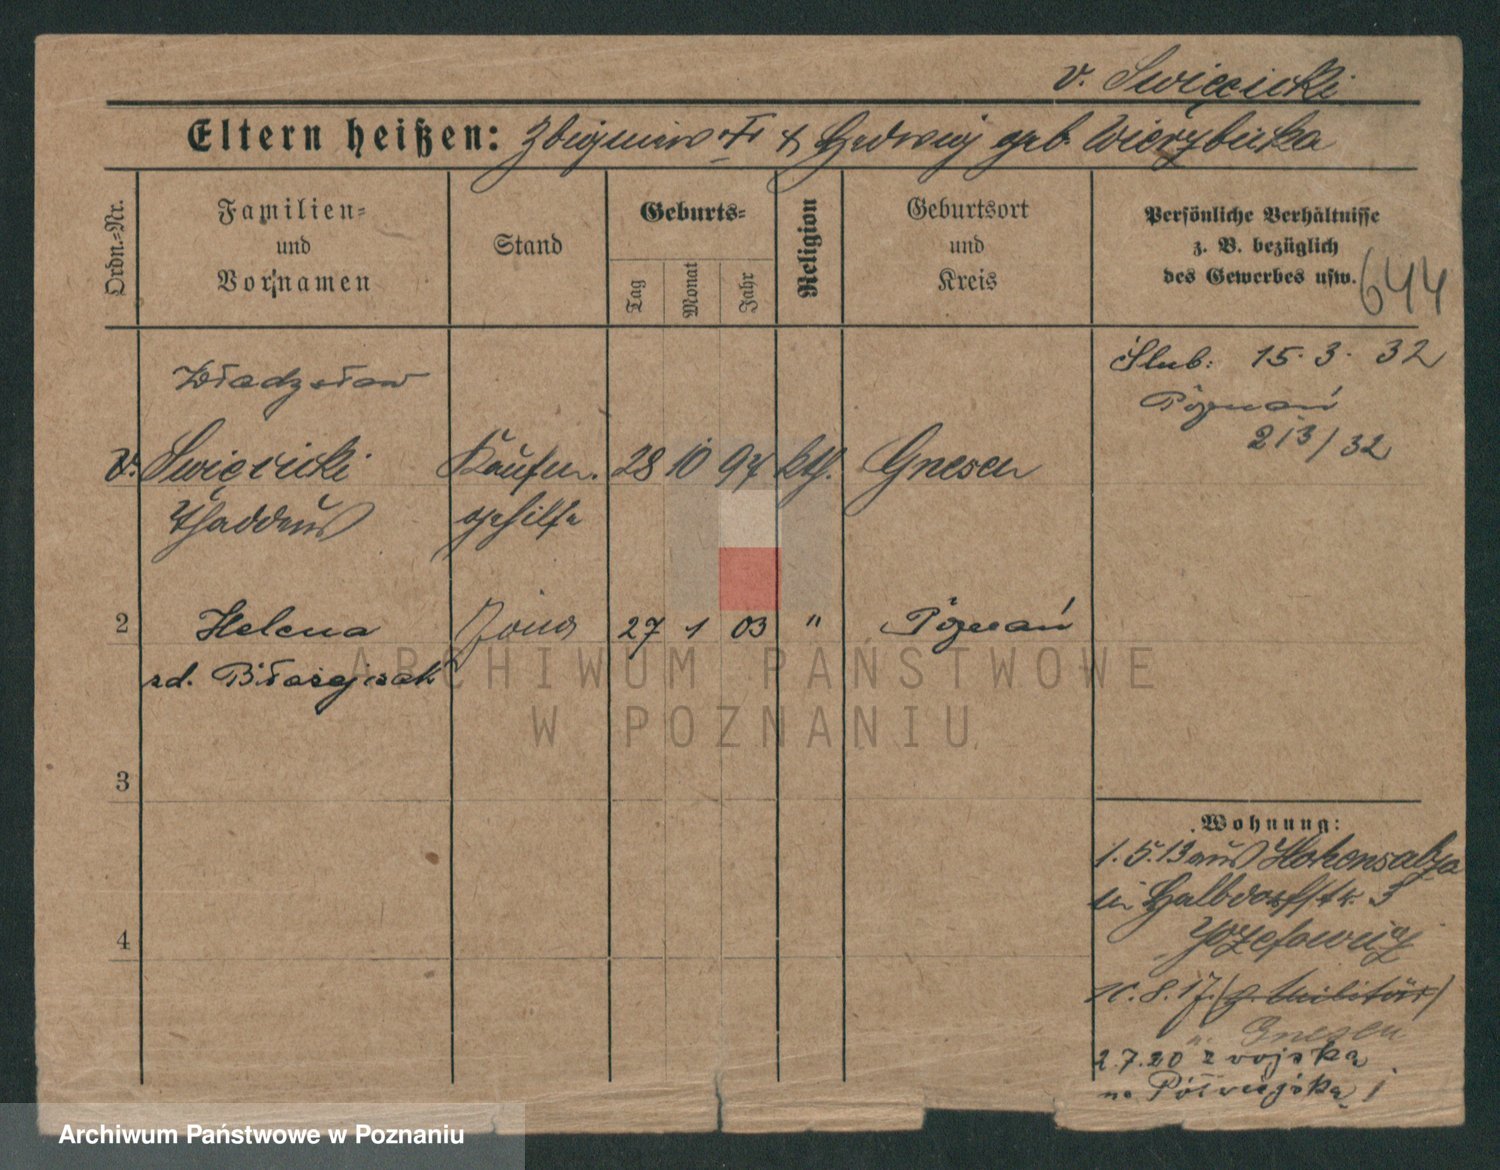 v. Święcicki
Eltern heißen: Zbigniew Fr & Hedwig geb. Wierzbicka
Ordn.-Nr.
Familien-
und
Vornamen
Stand
Geburts-
Tag
Monat
Jahr
Religion
Geburtsort
und
Kreis
Persönliche Verhältnisse
z. B. bezüglich
des Gewerbes usw.
644
Ślub: 15. 3. 32
Poznań
213/32
Władysław
v. Święcicki Kaufm. 28 10 97 kth. Gnesen
Thaddäus gehilfe
2 Helena żona 27 1 03 " Poznań
zd. Błażejczak
3
4
Wohnung:
1.5.13 aus Hohensalza
in Halbdorfstr. 3
10.8.17. (z. Militär)
n. Gnesen
2.7.20 z wojska
na Półwiejską 1
ARCHIWUM PAŃSTWOWE
W POZNANIU
Archiwum Państwowe w Poznaniu